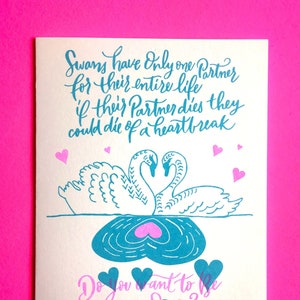 Swans have Only one Partner
for their entire life
if their Partner dies they
could die of a heartbreak
Do you want to Be